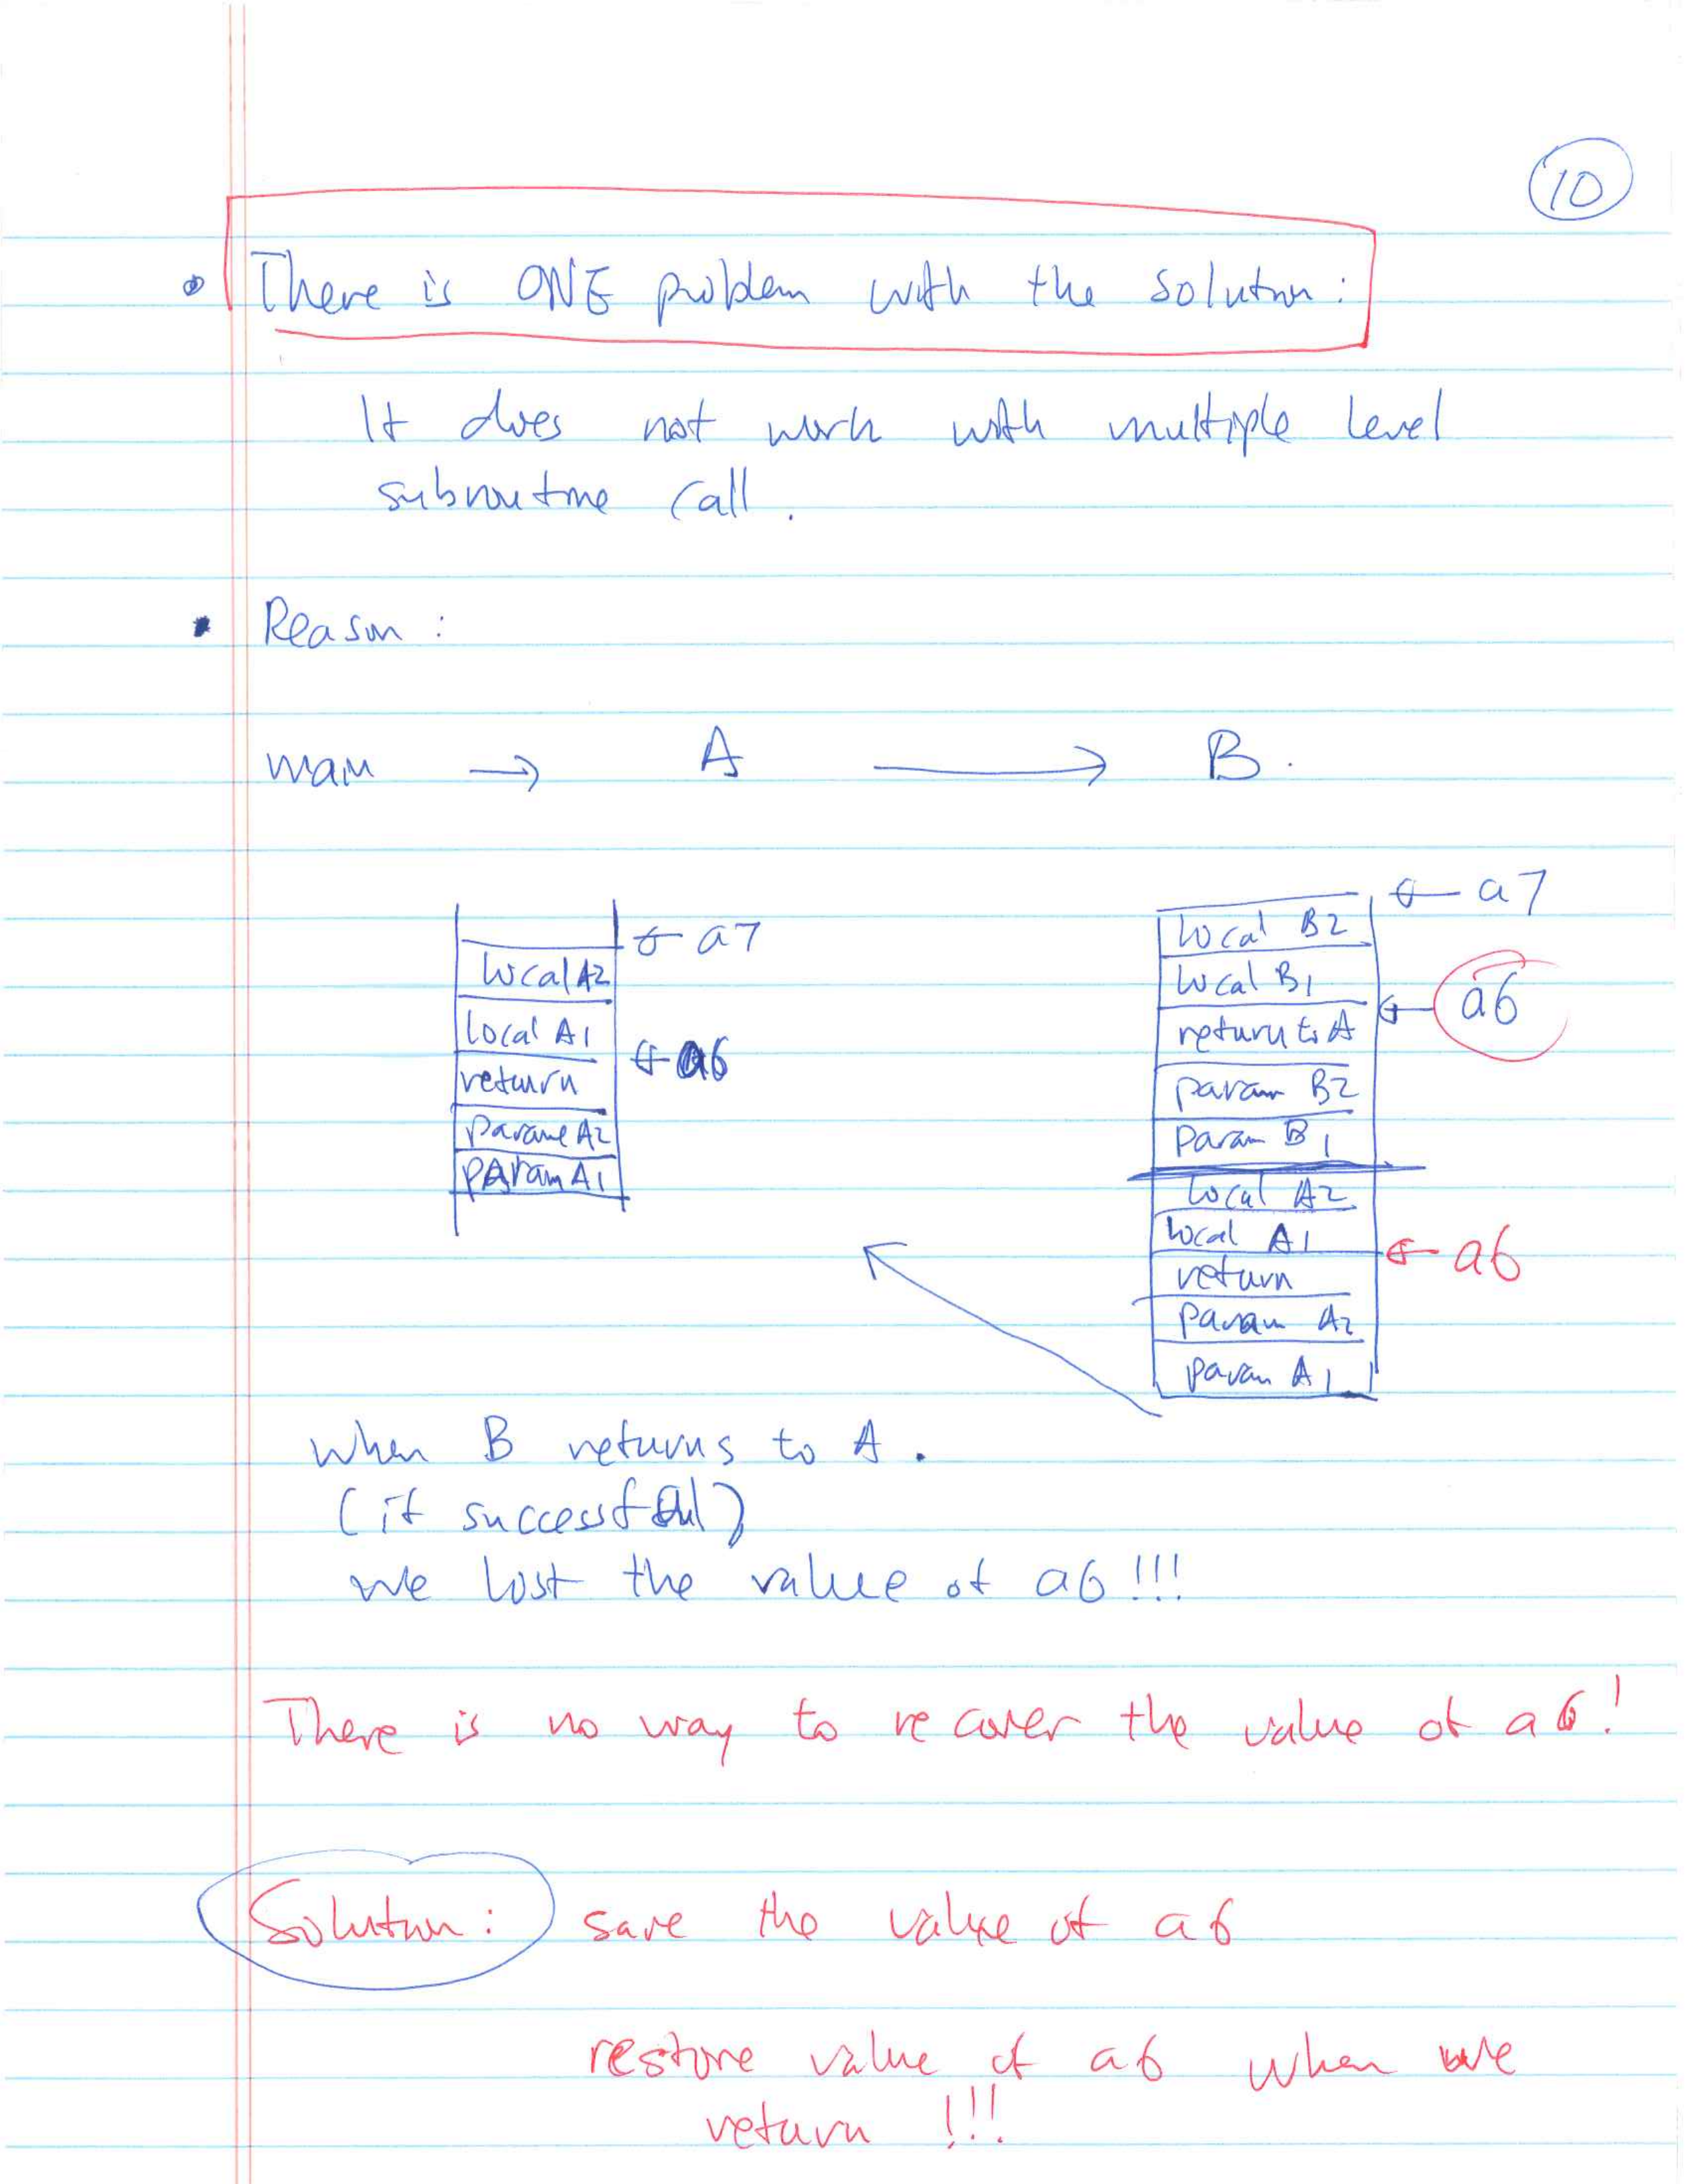 10
There is ONE problem with the solution:
It does not work with multiple level
subroutine call.
Reason:
main → A → B.
← a7
local A2
local A1
← a6
return
Parame A2
PAram A1
← a7
local B2
local B1
← a6
return to A
param B2
Param B1
local A2
local A1
← a6
return
Param A2
param A1
when B returns to A.
(if successful)
we lost the value of a6!!!
There is no way to recover the value of a6!
Solution: save the value of a6
restore value of a6 when we
return !!!